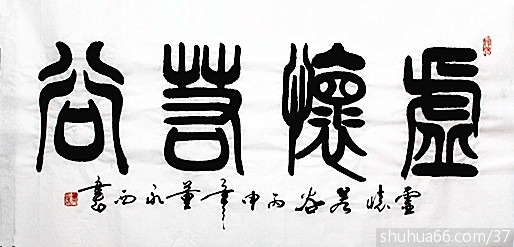 虛懷若谷
虛懷若谷丙申年董永西書
shuhua66.com/37